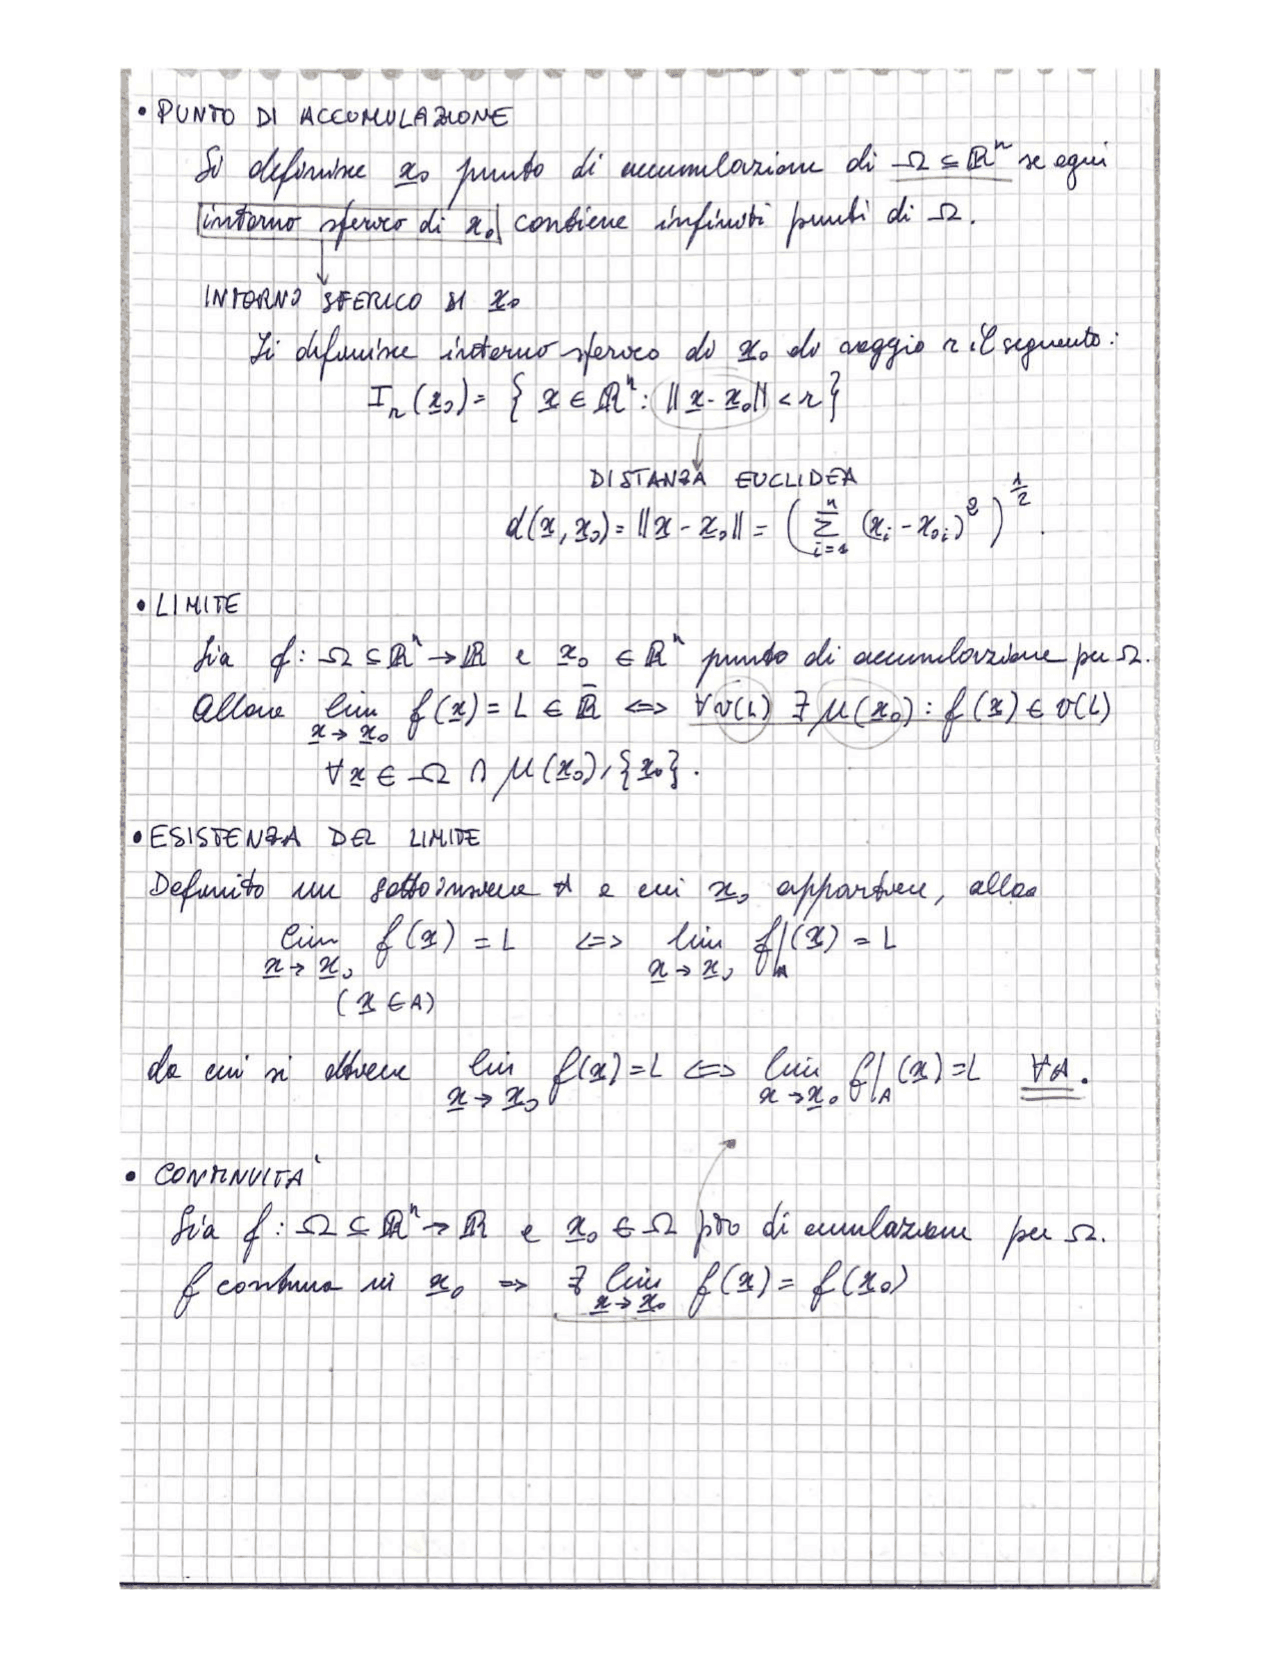 • PUNTO DI ACCUMULAZIONE
Si definisce x₀ punto di accumulazione di Ω ⊆ ℝⁿ se ogni
intorno sferico di x₀ contiene infiniti punti di Ω.
INTORNO SFERICO DI x₀
Si definisce intorno sferico di x₀ di raggio r il seguente:
Iᵣ(x₀) = { x ∈ ℝⁿ : ||x - x₀|| < r }
DISTANZA EUCLIDEA
d(x, x₀) = ||x - x₀|| = ( Σᵢ₌₁ⁿ (xᵢ - x₀ᵢ)² )^(1/2) .
• LIMITE
Sia f : Ω ⊆ ℝⁿ → ℝ e x₀ ∈ ℝⁿ punto di accumulazione per Ω.
Allora lim x→x₀ f(x) = L ∈ ℝ̄ <=> ∀ v(L) ∃ μ(x₀) : f(x) ∈ v(L)
∀ x ∈ Ω ∩ μ(x₀) \ {x₀} .
• ESISTENZA DEL LIMITE
Definito un sottoinsieme A a cui x₀ appartiene, allora
lim x→x₀ f(x) = L <=> lim x→x₀ f|A(x) = L
(x ∈ A)
da cui si ottiene lim x→x₀ f(x) = L <=> lim x→x₀ f|A(x) = L ∀A .
• CONTINUITA'
Sia f : Ω ⊆ ℝⁿ → ℝ e x₀ ∈ Ω pto di cumulazione per Ω.
f continua in x₀ => ∃ lim x→x₀ f(x) = f(x₀)